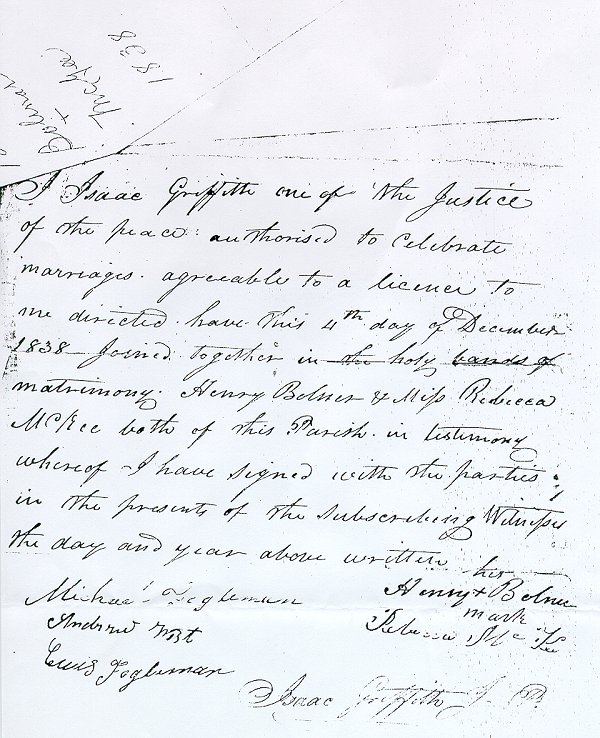 1838
McKee
+
Bolner
I Isaac Griffith one of the Justice
of the peace authorised to celebrate
marriages. agreeable to a licence to
me directed have this 4th day of December
1838 Joined together in the holy bands of
matrimony. Henry Bolner & Miss Rebecca
McKee both of this Parish. in testimony
whereof I have signed with the parties
in the presents of the subscribing Witnesses
the day and year above written
his
Henry + Bolner
mark
Rebecca Mc Kee
Michael Fogleman
Andrew
Lewis Fogleman
Isaac Griffith J P